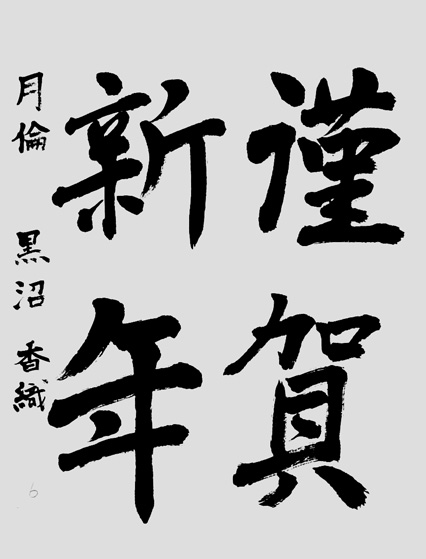 謹賀
新年
月倫 黒沼 香織
6